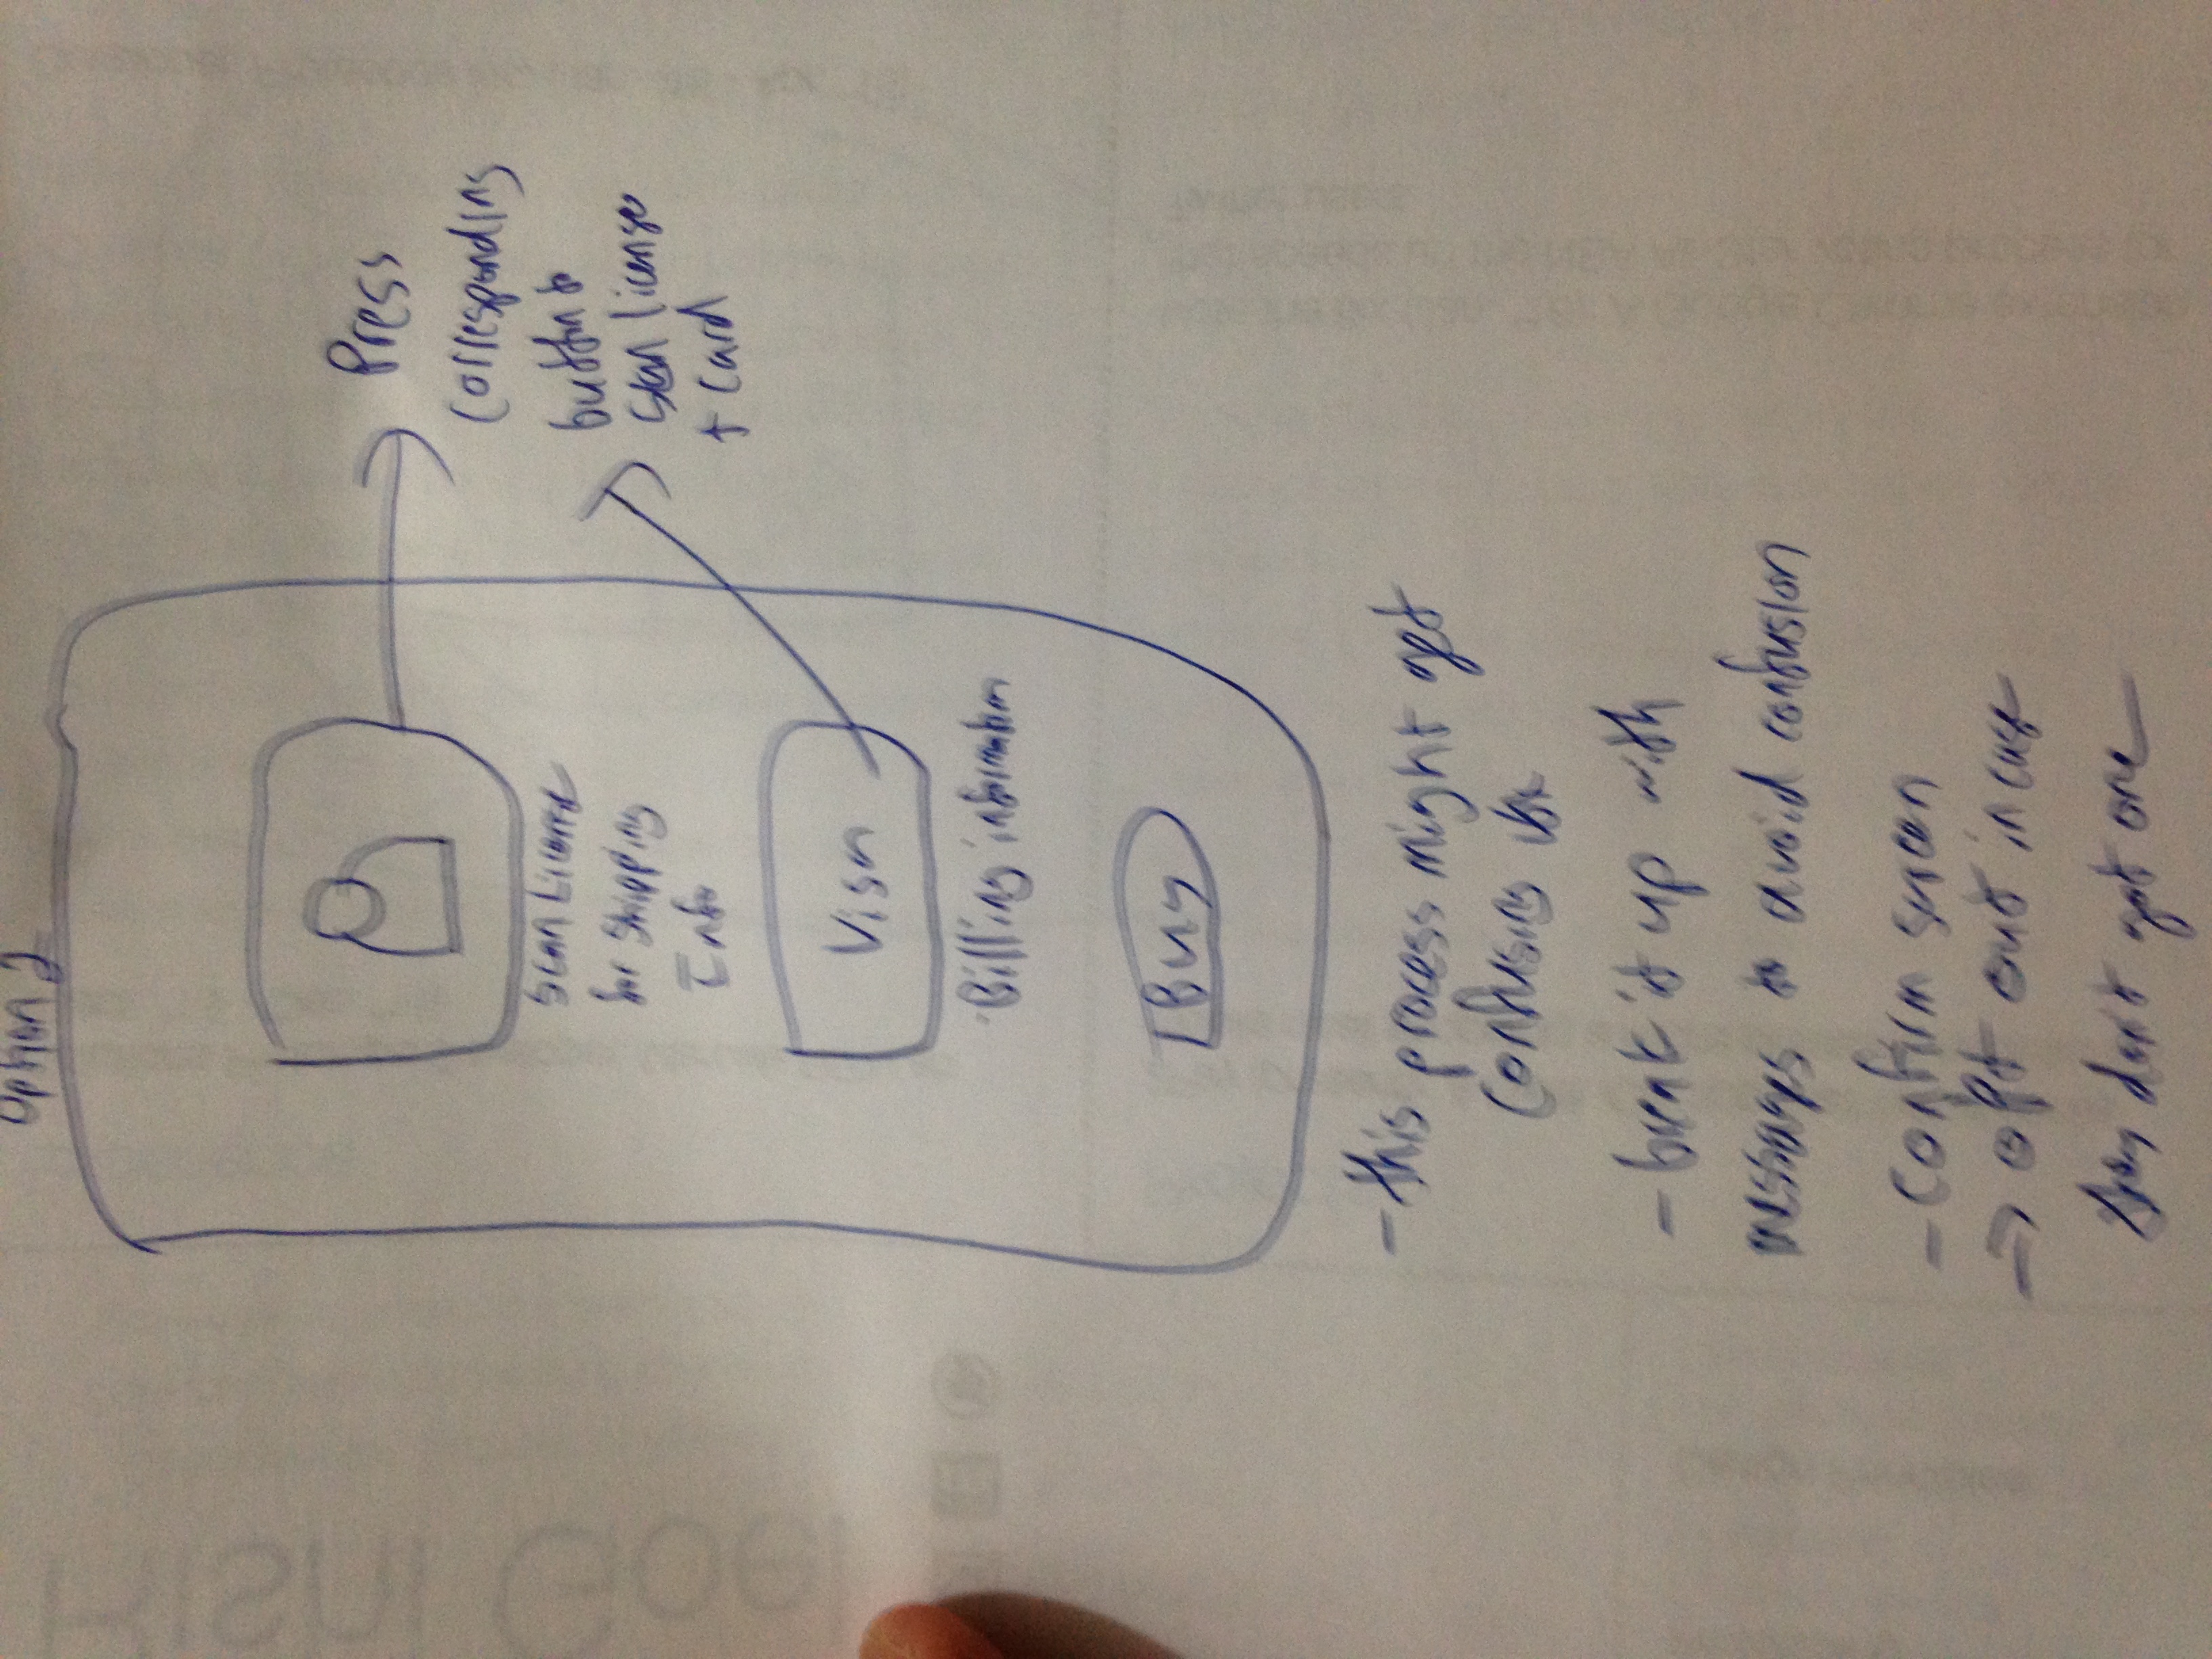 Option 2
Scan License
for Shipping
Info
Visa
Billing information
Buy
Press
corresponding
button to
scan license
+ card
- this process might get
confusing
- break it up with
messages to avoid confusion
- Confirm screen
→ opt out in case
they don't got one